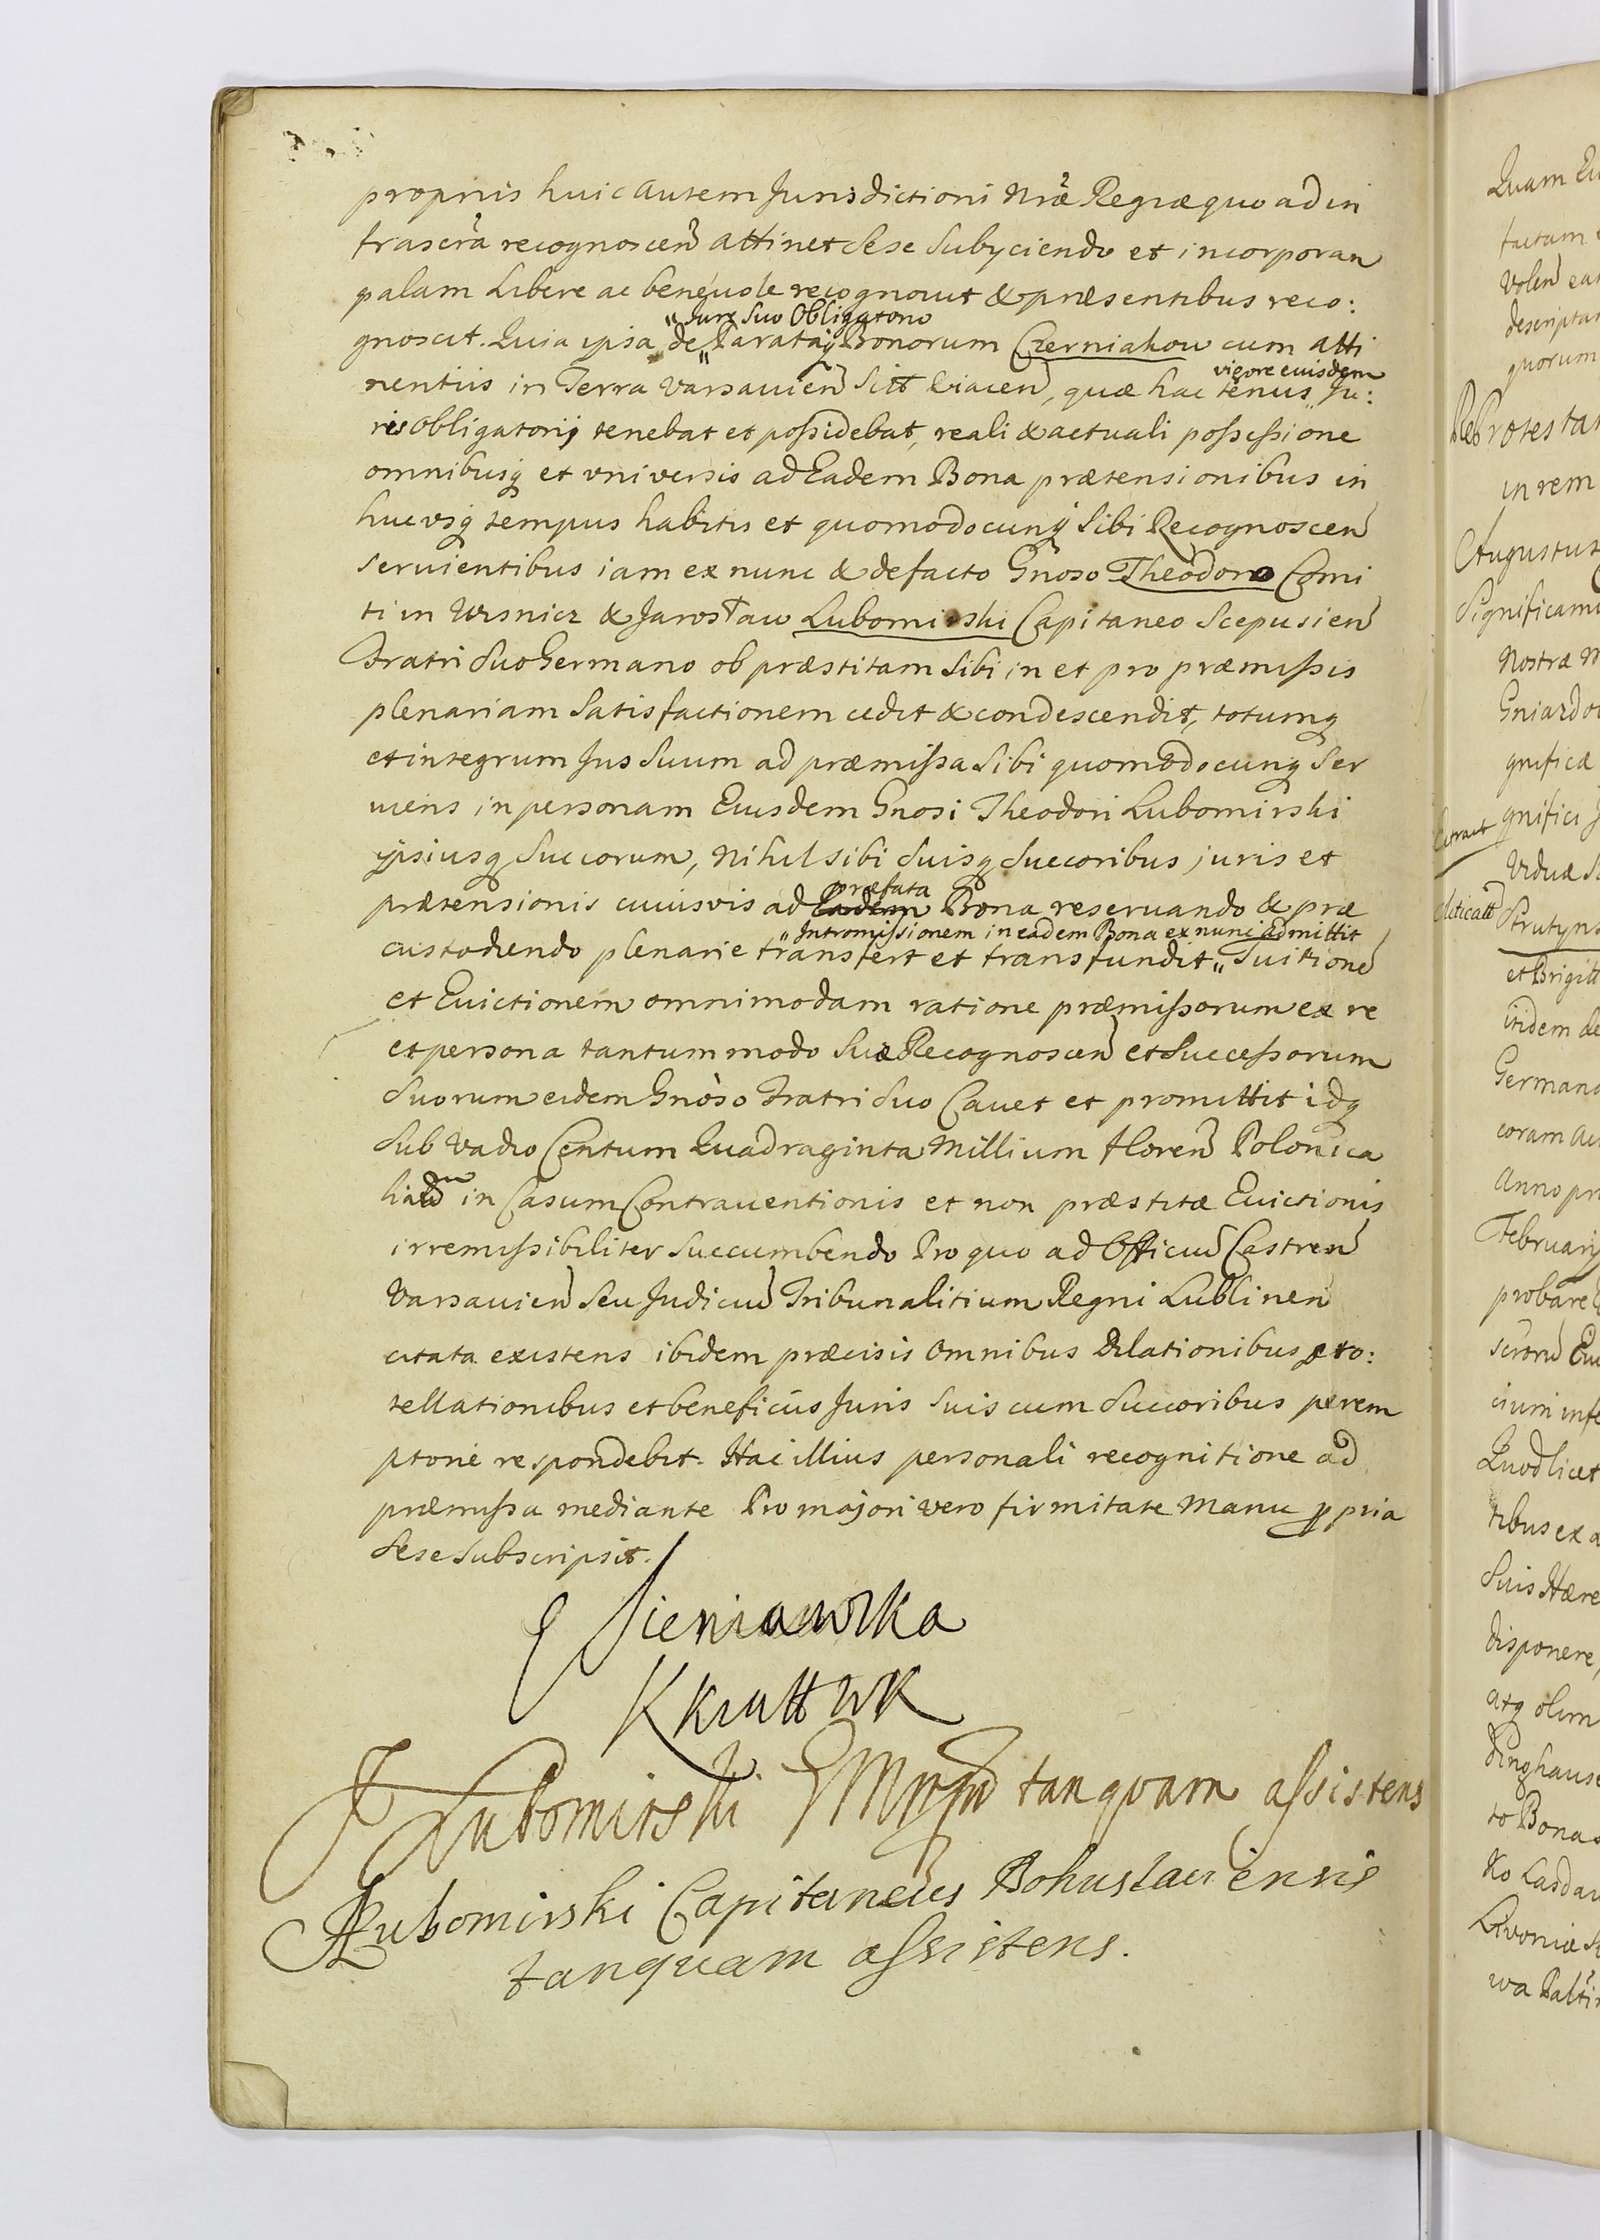 proprijs huic autem Jurisdictioni Nrae Regiae quo ad in
frascra recognoscen attinet Sese Subyciendo et incorporan
palam Libere ac beneuole recognouit & praesentibus reco:
gnoscit. Quia ipsa de "Jure Suo Obligatorio" Parataq Bonorum Czerniakow cum atti
nentiis in Terra Varsauien Sitt Eiacen, quae hac tenus "vigore eiusdem Ju:
ris Obligatorij tenebat et possidebat, reali & actuali possessione
omnibusq et vniversis ad Eadem Bona praetensionibus in
huc vsq tempus habitis et quomodocunq Sibi Recognoscen
seruientibus iam ex nunc & de facto Gnoso Theodoro Comi
ti in Wisnicz & Jarosław Lubomirski Capitaneo Scepusien
Fratri Suo Germano ob praestitam Sibi in et pro praemissis
plenariam Satisfactionem cedit & condescendit, totumq
et integrum Jus Suum ad praemissa Sibi quomodocunq Ser
uiens in personam Eiusdem Gnosi Theodori Lubomirski
ipsiusq Succorum, Nihil sibi Suisq Succoribus juris et
praetensionis cuiusvis ad Eadem praefata Bona reseruando & prae
custodiendo plenarie transfert et transfundit "Intromissionem in eadem Bona ex nunc admittit" Tuitione
et Euictionem omnimodam ratione praemissorum ex re
et persona tantummodo Suae Recognoscen et Successorum
Suorum eidem Gnoso Fratri Suo Cauet et promittit idq
Sub Vadio Centum Quadraginta Millium floren Polonica
lium in Casum Contrauentionis et non praestitae Euictionis
irremissibiliter Succumbendo Pro quo ad Officiu Castren
Varsauien Seu Judiciu Tribunalitium Regni Lublinen
citata existens ibidem praecisis Omnibus Dilationibus pro:
tellationibus et beneficiis Juris Suis cum Succoribus perem
ptorie respondebit. Hac illius personali recognitione ad
praemissa mediante Pro majori vero firmitate Manu ppria
Sese Subscripsit.
E Sieniawska
J Lubomirski tanqvam assistens
Lubomirski Capitaneus Bohuslaviensis
tanquam assistens.
Quam
factam
Volen
descriptam
quorum
in rem
Augustus
Significamus
Nostrae
gnificae
gnifici
Extract
Viduae
Strutyns
et Brigitt
itidem de
Germano
coram
Anno
February
probare
Quod licet
tibus ex
Suis Haere
disponere,
atq olim
dinghause
to Bona
Livoniae